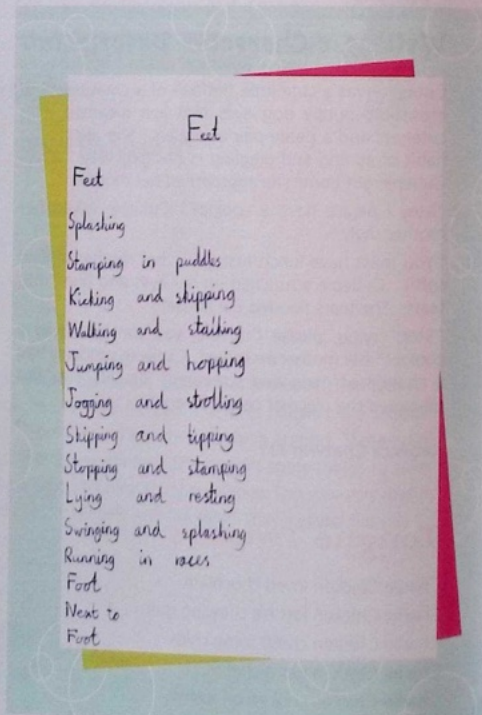 Feet
Feet
Splashing
Stamping in puddles
Kicking and skipping
Walking and stalking
Jumping and hopping
Jogging and strolling
Skipping and tipping
Stopping and stamping
Lying and resting
Swinging and splashing
Running in races
Foot
Next to
Foot